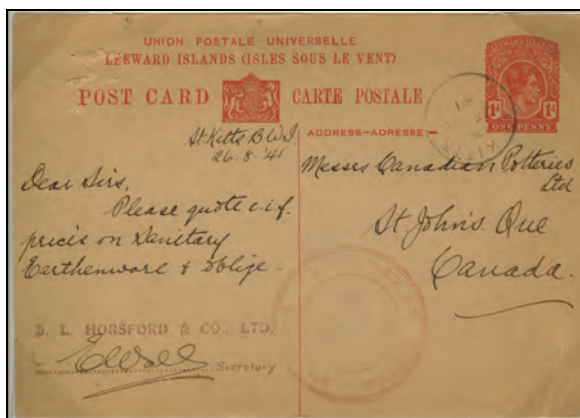 UNION POSTALE UNIVERSELLE
LEEWARD ISLANDS (ISLES SOUS LE VENT)
POST CARD CARTE POSTALE
LEEWARD ISLANDS
1d 1d
ONE PENNY
ADDRESS–ADRESSE:–
St. Kitts B.W.I
26.8.'41
Dear Sirs,
Please quote c.i.f.
prices on Sanitary
Earthenware & oblige.
S. L. HORSFORD & CO., LTD.
Secretary
Messrs Canadian Potteries
Ltd
St John's Que
Canada.